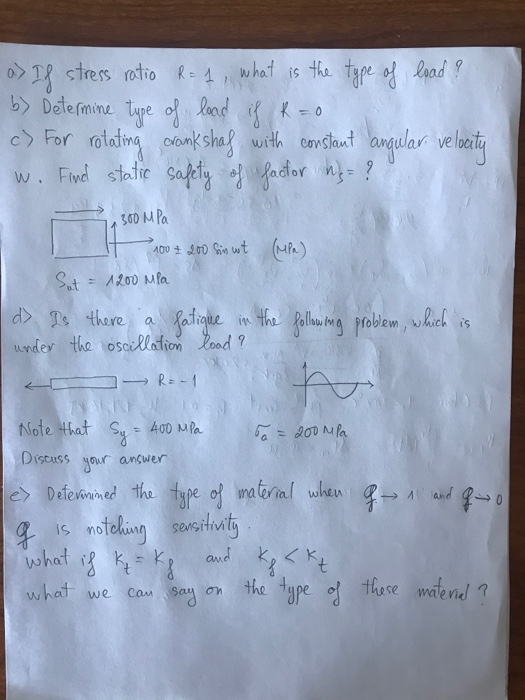 a> If stress ratio R = 1, what is the type of load?
b> Determine type of load if R = 0
c> For rotating crankshaf with constant angular velocity
w. Find static safety of factor ns = ?
300 MPa
100 ± 200 Sin wt (MPa)
Sut = 1200 MPa
d> Is there a fatigue in the following problem, which is
under the oscillation load?
R = -1
Note that Sy = 400 MPa σa = 200 MPa
Discuss your answer
e> Determined the type of material when q → 1 and q → 0
q is notching sensitivity.
what if Kt = Kf and Kf < Kt
what we can say on the type of these material?